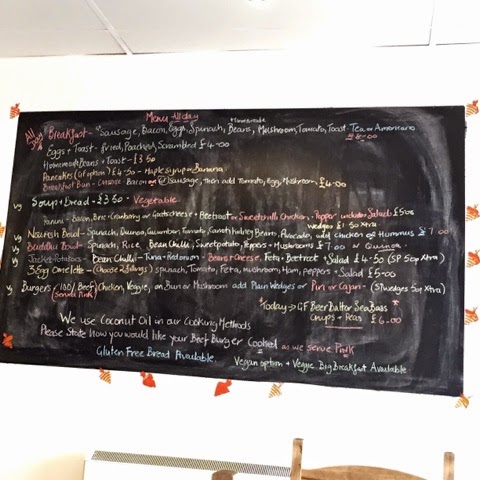 Menu All day
Homemade
All Day Breakfast - Sausage, Bacon, Eggs, Spinach, Beans, Mushroom, Tomato, Toast - Tea or Americano
Eggs + Toast - fried, Poached, Scrambled £4-00
Homemade Beans + Toast - £3-50
Pancakes (GF option) £4-50 - Maple syrup or Banana
Breakfast Bun - Choose - Bacon or Sausage, Then add Tomato, Egg, Mushroom £4-00
vg Soup + Bread - £3-50 - Vegetable
Panini - Bacon, Brie - Cranberry or Goatscheese + Beetroot or Sweetchilli Chicken, Pepper includes Salad £5.00
wedges £1-50 Xtra
vg Nourish Bowl - Spinach, Quinoa, Cucumber, Tomato, Carrot, Kidney Beans, Avocado, add Chicken or Hummus £7.00
vg Buddha Bowl - Spinach, Rice, Bean Chilli, Sweetpotato, Peppers + Mushrooms £7.00 w Quinoa
vg Jacket Potatoes - Bean Chilli - Tuna + Redonion - Beans + Cheese, Feta + Beetroot + Salad £4-50 (SP 50p Xtra)
3 Egg Omelette - (Choose 2 fillings) spinach, Tomato, Feta, mushroom, Ham, peppers + Salad £5-00
vg Burgers - (100% Beef) Chicken, Veggie, in Bun or Mushroom add Plain Wedges or Piri or Cajun -
(Served Pink)
Today → GF Beer Batter Sea Bass
Chips + Peas £6-00
We use Coconut Oil in our Cooking Methods
Please State How you would like your Beef Burger Cooked as we serve Pink
Gluten Free Bread Available. Vegan option + Veggie Big Breakfast Available